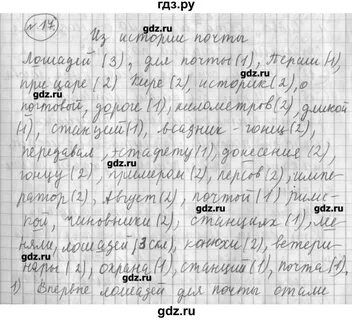 гдз.ру
№17.
Из истории почты
Лошадей (3), для почты (1), Персии (1)
при царе (2) Кире (2), историк (2), о
почтовой, дороге (1), километров (2), длиной
(1), станций (1), всадник - гонец (2),
передавал эстафету (1), донесения (2),
гонцу (2), примером (2), персов (2), импе-
ратор (2), Август (2), почтой (1) рим-
ской, чиновники (2), станциях (1), ме-
няли, лошадей (3 скл), конюхи (2), ветери-
нары (2), охрана (1), станций (1), почта (1),
1) Впервые лошадей для почты стали
gdz.ru
gdz.ru
gdz.ru
gdz.ru
gdz.ru
gdz.ru
gdz.ru
gdz.ru